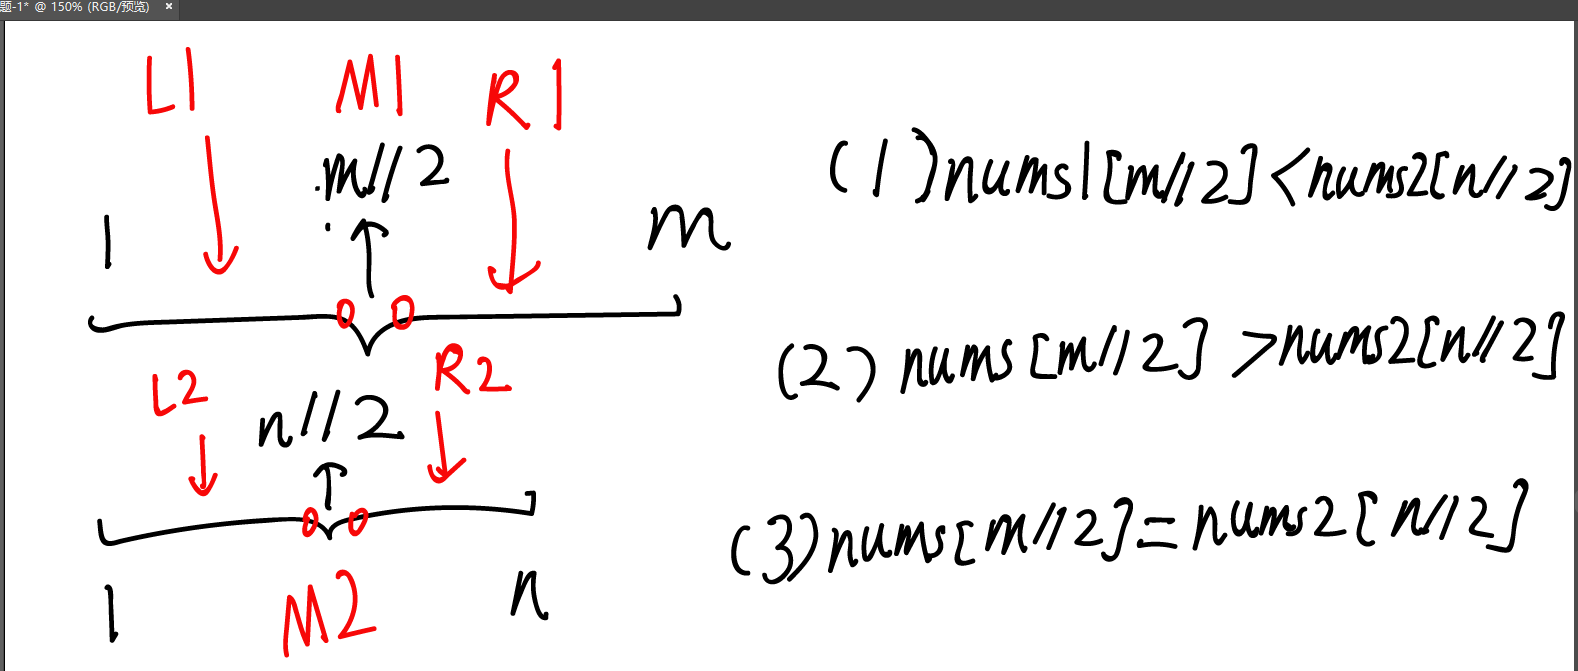 题-1* @ 150% (RGB/预览) ×
L1 M1 R1
m//2
1 m
L2 R2
n//2
1 M2 n
(1)nums1[m//2]<nums2[n//2]
(2) nums[m//2]>nums2[n//2]
(3)nums[m//2]=nums2[n//2]